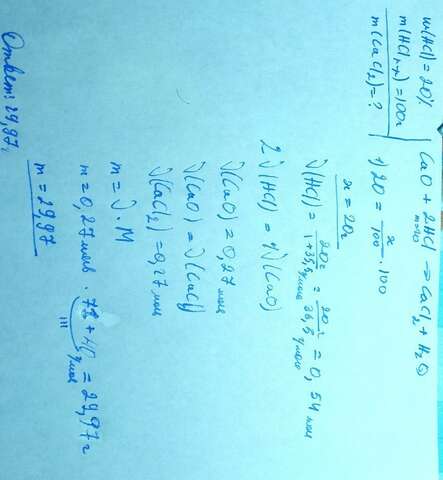 w(HCl) = 20%
m(HCl р-р) = 100г
m(CaCl₂) = ?
CaO + 2HCl → CaCl₂ + H₂O
m=20
1) 20 = x/100 · 100
x = 20г
ν(HCl) = 20г/1+35,5 г/моль = 20г/36,5 г/моль = 0,54 моль
2ν(HCl) = 1ν(CaO)
ν(CaO) = 0,27 моль
ν(CaO) = ν(CaCl)
ν(CaCl₂) = 0,27 моль
m = ν · M
m = 0,27 моль · = 29,97 г
111 г/моль
m = 29,97
Ответ: 29,97г